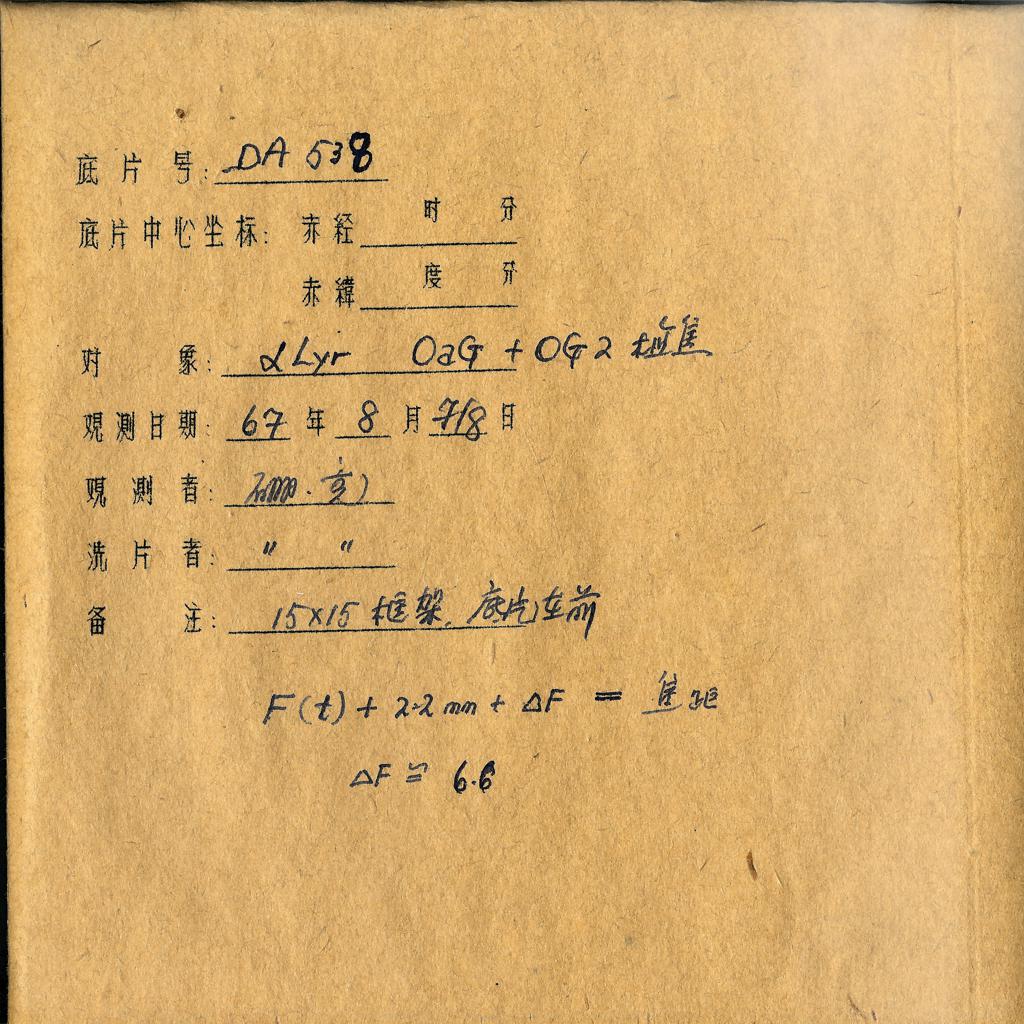 底片号: DA 538
底片中心坐标: 赤经 时 分
赤緯 度 分
对 象: αLyr OaG + OG2 检焦
观测日期: 67 年 8 月 7/8 日
观测者:
洗片者: 〃 〃
备 注: 15×15 框架. 底片在前
F(t) + 2.2 mm + ΔF = 焦距
ΔF ≌ 6.6